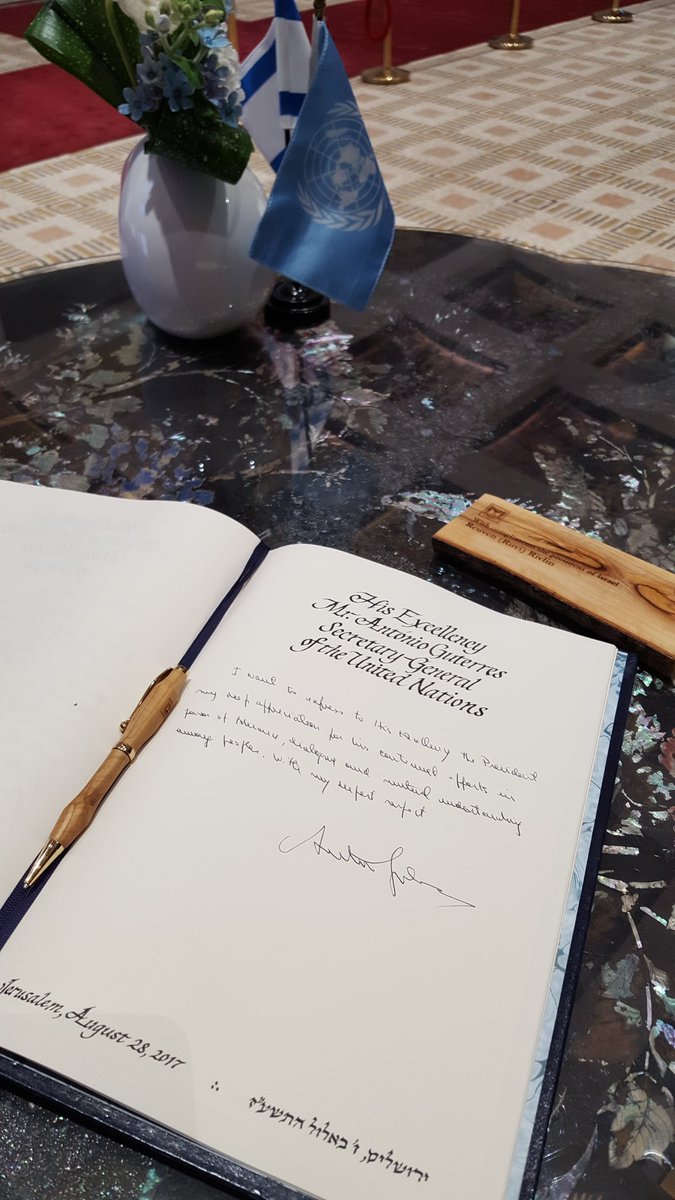 With compliments the president of Israel
Reuven (Ruvi) Rivlin
His Excellency
Mr. Antonio Guterres
Secretary-General
of the United Nations
I want to express to His Excellency the President
my deep appreciation for his continued efforts in
favor of tolerance, dialogue and mutual understanding
among peoples. With my respect
Jerusalem, August 28, 2017
ירושלים, ו' באלול התשע"ז